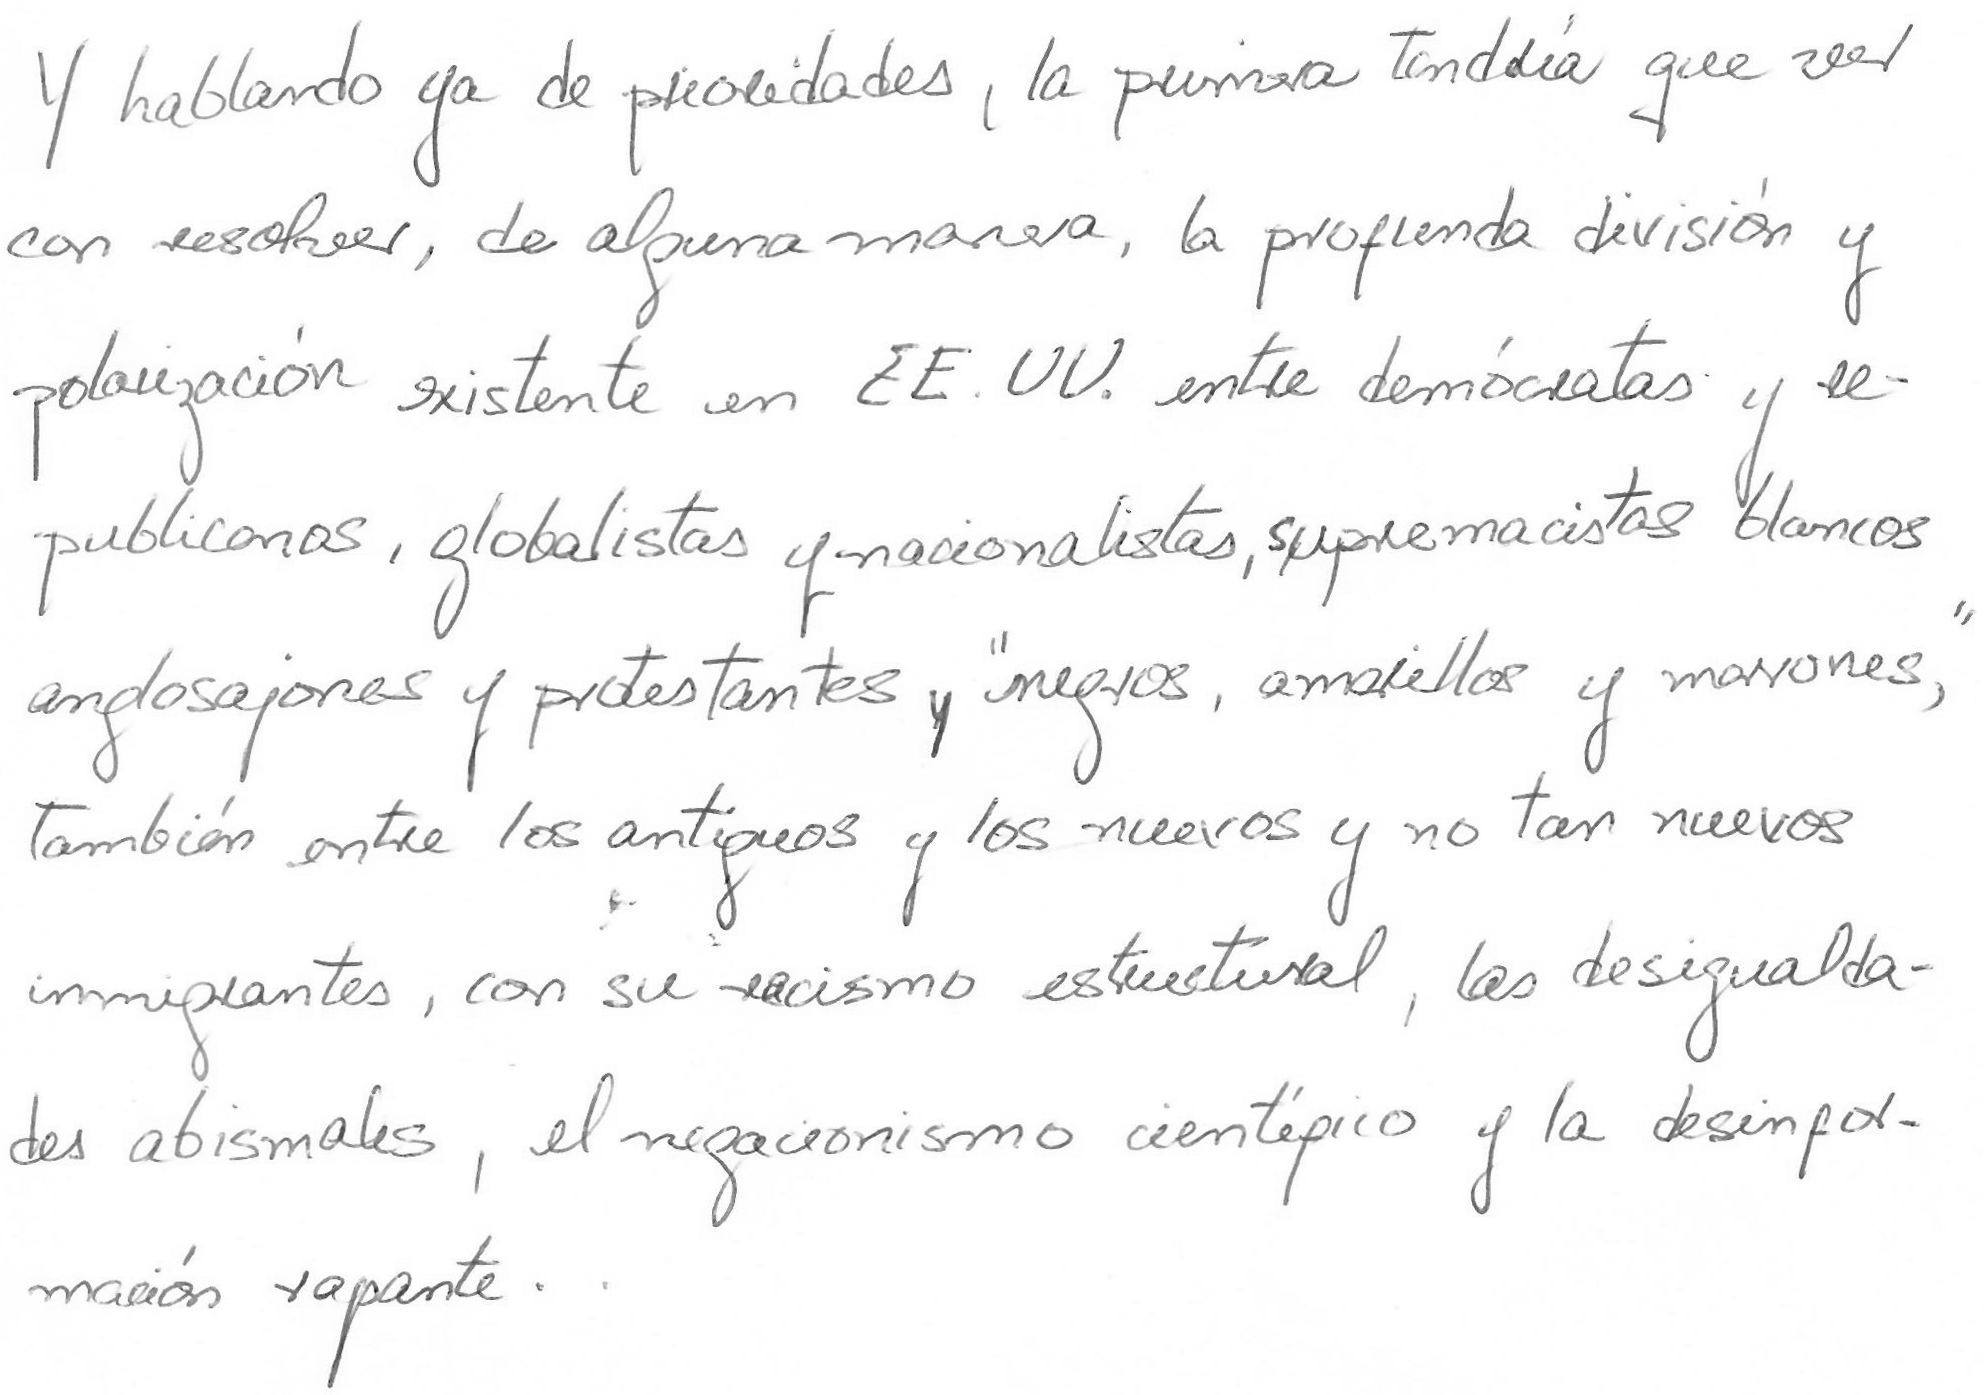 Y hablando ya de prioridades, la primera tendría que ver
con resolver, de alguna manera, la profunda división y
polarización existente en EE.UU. entre demócratas y re-
publicanos, globalistas y nacionalistas, supremacistas blancos
anglosajones y protestantes y "negros, amarillos y marrones,"
también entre los antiguos y los nuevos y no tan nuevos
inmigrantes, con su racismo estructural, las desigualda-
des abismales, el negacionismo científico y la desinfor-
mación rapante.